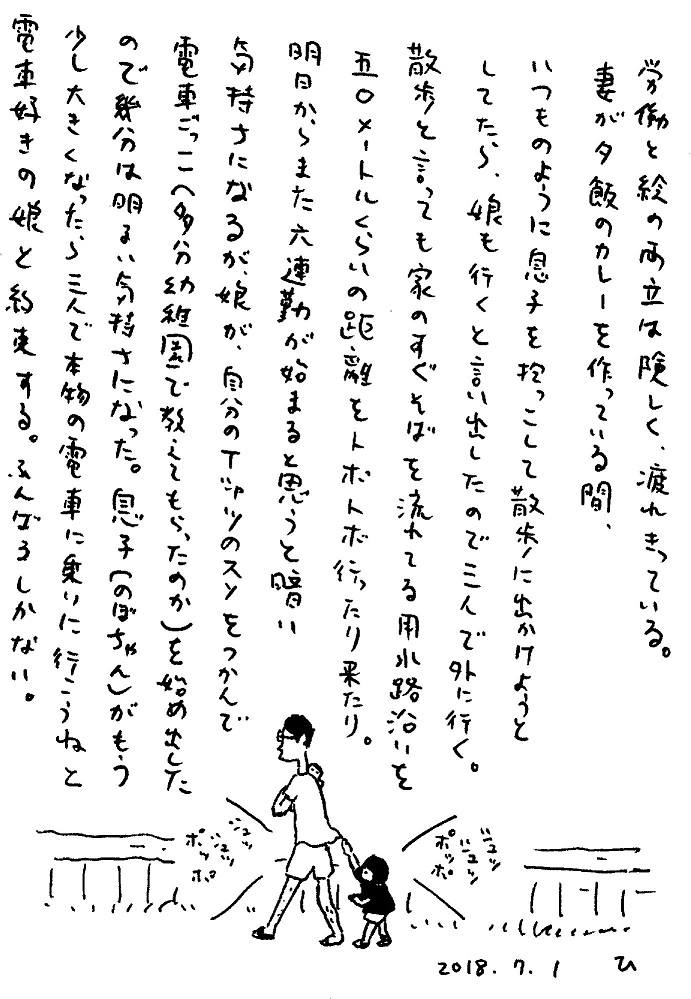 労働と絵の両立は険しく、疲れきっている。
妻が夕飯のカレーを作っている間、
いつものように息子を抱っこして散歩に出かけようと
してたら、娘も行くと言い出したので三人で外に行く。
散歩と言っても家のすぐそばを流れてる用水路沿いを
五〇メートルくらいの距離をトボトボ行ったり来たり。
明日からまた六連勤が始まると思うと暗い
気持ちになるが、娘が、自分のTシャツのスソをつかんで
電車ごっこ(多分幼稚園で教えてもらったのか)を始め出した
ので幾分は明るい気持ちになった。息子(のぼちゃん)がもう
少し大きくなったら三人で本物の電車に乗りに行こうねと
電車好きの娘と約束する。ふんばるしかない。
シュッ
シュッ
ポッ
ポ
シュッ
シュッ
ポッ
ポ
2018.7.1 ひ